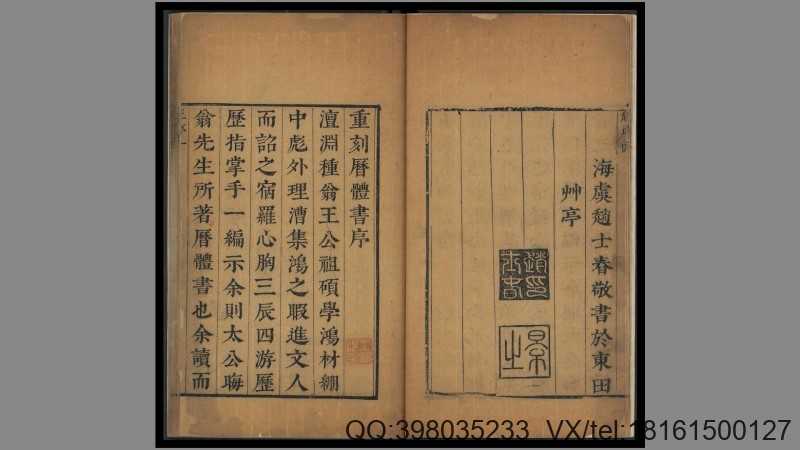 海虞趙士春敬書於東田
艸亭
重刻曆體書序
澶淵種翁王公祖碩學鴻材綳
中彪外理漕集鴻之暇進文人
而詔之宿羅心胸三辰四游歷
歷指掌手一編示余則太公晦
翁先生所著曆體書也余讀而
QQ:398035233 VX/tel:18161500127